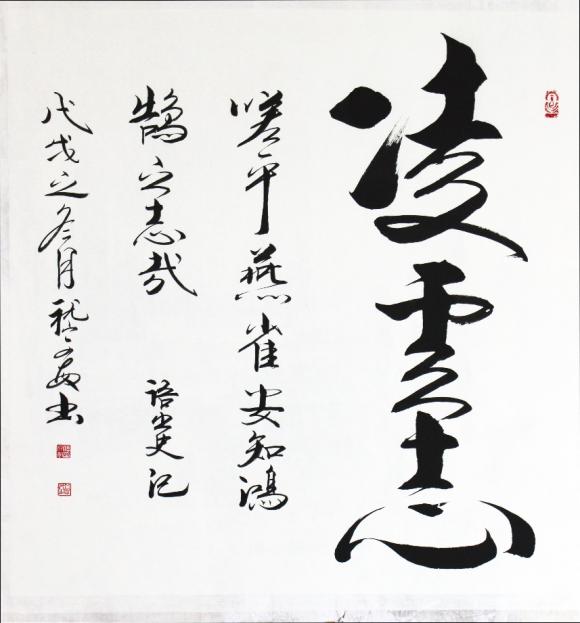 凌雲志
嗟乎燕雀安知鴻
鵠之志哉
語出史记
戊戌之冬月
書